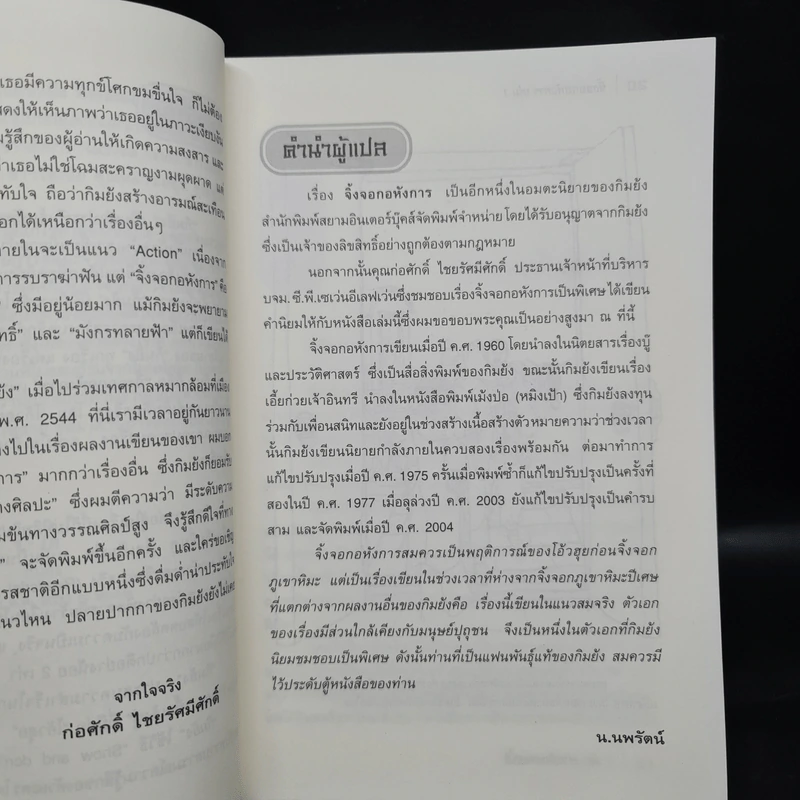 เธอมีความทุกข์โศกขมขื่นใจ ก็ไม่ต้อง
แสดงให้เห็นภาพว่าเธออยู่ในภาวะเงียบงัน
รู้สึกของผู้อ่านให้เกิดความสงสาร และ
ว่าเธอไม่ใช่โฉมสะคราญงามผุดผาด แต่
ทับใจ ถือว่ากิมย้งสร้างอารมณ์สะเทือน
ออกได้เหนือกว่าเรื่องอื่นๆ
ภายในจะเป็นแนว “Action” เนื่องจาก
การรบราฆ่าฟัน แต่ “จิ้งจอกอหังการ” คือ
” ซึ่งมีอยู่น้อยมาก แม้กิมย้งจะพยายาม
ทธิ์” และ “มังกรทลายฟ้า” แต่ก็เขียนได้
ย้ง” เมื่อไปร่วมเทศกาลหมากล้อมที่เมือง
พ.ศ. 2544 ที่นี่เรามีเวลาอยู่กันยาวนาน
ลงไปในเรื่องผลงานเขียนของเขา ผมบอก
การ” มากกว่าเรื่องอื่น ซึ่งกิมย้งก็ยอมรับ
างศิลปะ” ซึ่งผมตีความว่า มีระดับความ
มข้นทางวรรณศิลป์สูง จึงรู้สึกดีใจที่ทาง
” จะจัดพิมพ์ขึ้นอีกครั้ง และใคร่ขอเชิญ
รสชาติอีกแบบหนึ่งซึ่งดื่มด่ำน่าประทับใจ
แนวไหน ปลายปากกาของกิมย้งยังไม่เคย
จากใจจริง
ก่อศักดิ์ ไชยรัศมีศักดิ์
คำนำผู้แปล
เรื่อง จิ้งจอกอหังการ เป็นอีกหนึ่งในอมตะนิยายของกิมย้ง
สำนักพิมพ์สยามอินเตอร์บุ๊คส์จัดพิมพ์จำหน่าย โดยได้รับอนุญาตจากกิมย้ง
ซึ่งเป็นเจ้าของลิขสิทธิ์อย่างถูกต้องตามกฎหมาย
นอกจากนั้นคุณก่อศักดิ์ ไชยรัศมีศักดิ์ ประธานเจ้าหน้าที่บริหาร
บจม. ซี.พี.เซเว่นอีเลฟเว่นซึ่งชมชอบเรื่องจิ้งจอกอหังการเป็นพิเศษ ได้เขียน
คำนิยมให้กับหนังสือเล่มนี้ซึ่งผมขอขอบพระคุณเป็นอย่างสูงมา ณ ที่นี้
จิ้งจอกอหังการเขียนเมื่อปี ค.ศ. 1960 โดยนำลงในนิตยสารเรื่องบู๊
และประวัติศาสตร์ ซึ่งเป็นสื่อสิ่งพิมพ์ของกิมย้ง ขณะนั้นกิมย้งเขียนเรื่อง
เอี้ยก่วยเจ้าอินทรี นำลงในหนังสือพิมพ์เม้งป่อ (หมิงเป้า) ซึ่งกิมย้งลงทุน
ร่วมกับเพื่อนสนิทและยังอยู่ในช่วงสร้างเนื้อสร้างตัวหมายความว่าช่วงเวลา
นั้นกิมย้งเขียนนิยายกำลังภายในควบสองเรื่องพร้อมกัน ต่อมาทำการ
แก้ไขปรับปรุงเมื่อปี ค.ศ. 1975 ครั้นเมื่อพิมพ์ซ้ำก็แก้ไขปรับปรุงเป็นครั้งที่
สองในปี ค.ศ. 1977 เมื่อลุล่วงปี ค.ศ. 2003 ยังแก้ไขปรับปรุงเป็นคำรบ
สาม และจัดพิมพ์เมื่อปี ค.ศ. 2004
จิ้งจอกอหังการสมควรเป็นพฤติการณ์ของโอ้วฮุยก่อนจิ้งจอก
ภูเขาหิมะ แต่เป็นเรื่องเขียนในช่วงเวลาที่ห่างจากจิ้งจอกภูเขาหิมะปีเศษ
ที่แตกต่างจากผลงานอื่นของกิมย้งคือ เรื่องนี้เขียนในแนวสมจริง ตัวเอก
ของเรื่องมีส่วนใกล้เคียงกับมนุษย์ปุถุชน จึงเป็นหนึ่งในตัวเอกที่กิมย้ง
นิยมชมชอบเป็นพิเศษ ดังนั้นท่านที่เป็นแฟนพันธุ์แท้ของกิมย้ง สมควรมี
ไว้ประดับตู้หนังสือของท่าน
น.นพรัตน์